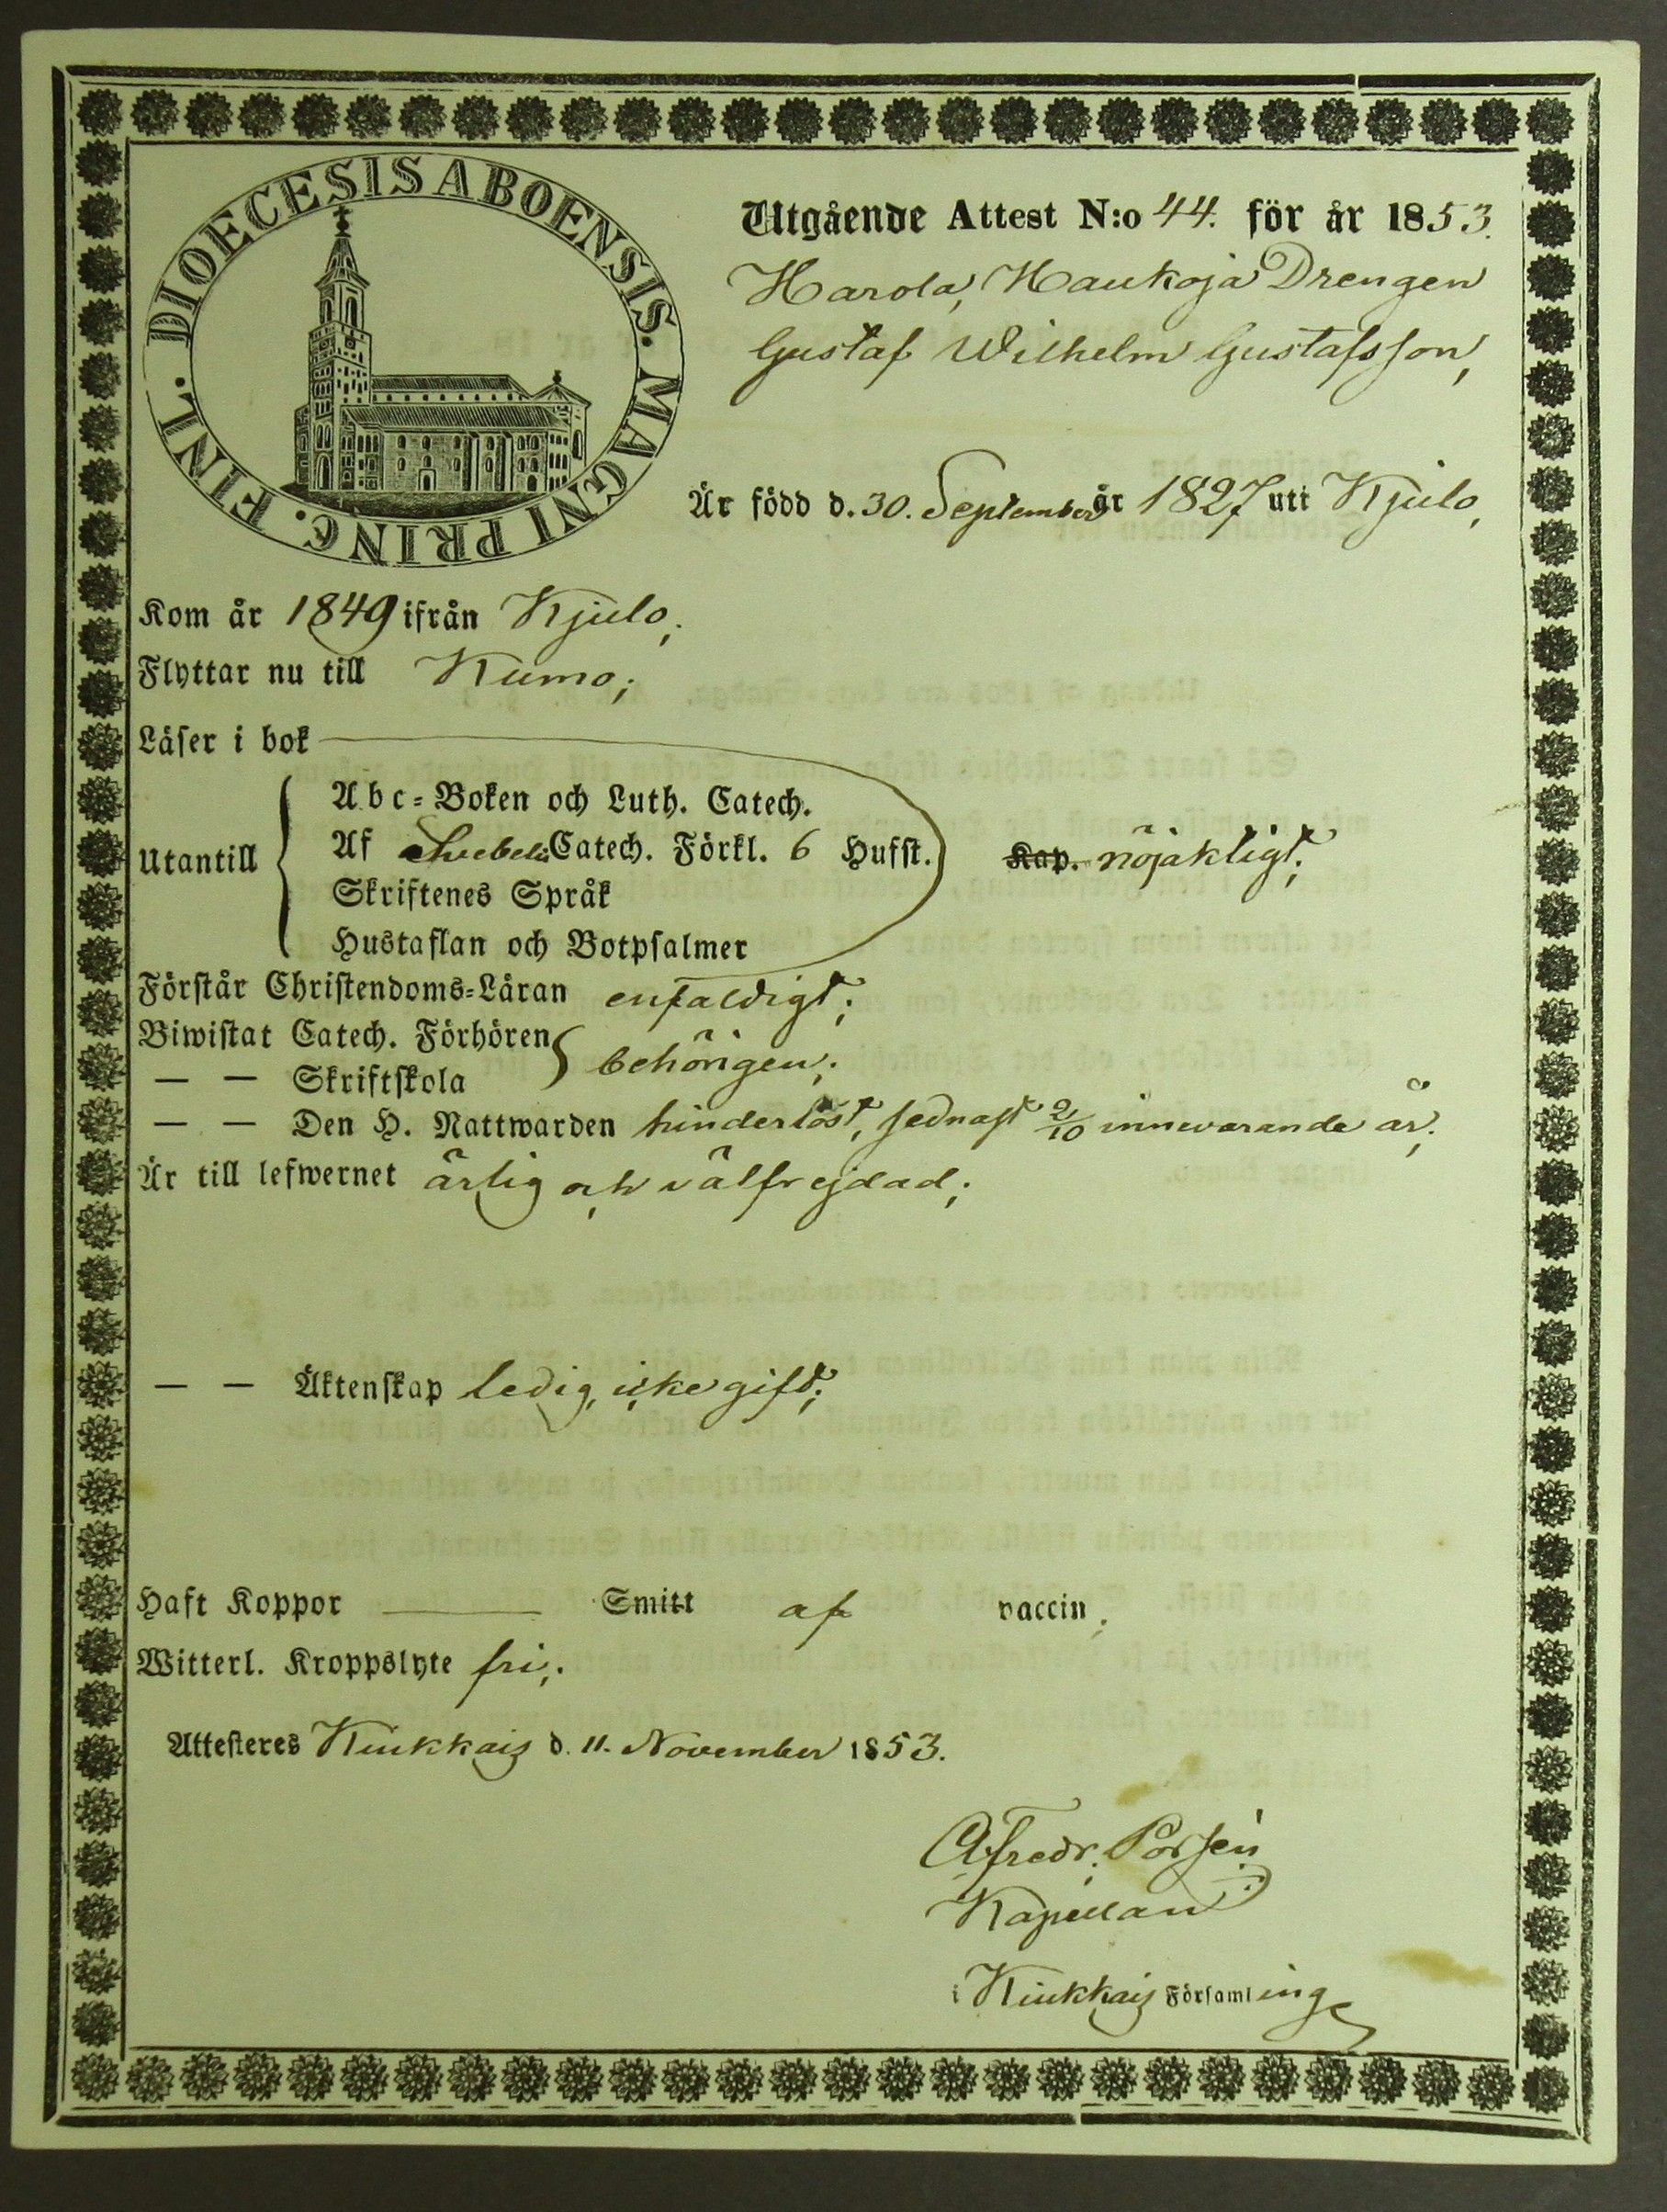 DIOECESIS ABOENSIS. MAGNI PRINC. FINL.
Utgående Attest N:o 44. för år 1853.
Harola, Haukoja Drengen
Gustaf Wilhelm Gustafsson,
Är född d. 30. September år 1827 uti Kjulo,
Kom år 1849 ifrån Kjulo;
Flyttar nu till Kumo;
Läser i bok
Utantill
Abc-Boken och Luth. Catech.
Af Svebelii Catech. Förkl. 6 Hufst. Kap. nöjaktligt;
Skriftenes Språk
Hustaflan och Botpsalmer
Förstår Christendoms-Läran enfaldigt;
Biwistat Catech. Förhören
— — Skriftskola behörigen;
— — Den H. Nattwarden hinderlöst, sednast 2/10 innevarande år;
Är till lefwernet ärlig och välfrejdad;
— — Äktenskap ledig, icke gift;
Haft Koppor — Smitt af vaccin;
Witterl. Kroppslyte fri;
Attesteres Kiukkais d. 11. November 1853.
Afredr. Porsén
Kapellan
i Kiukkais Församling